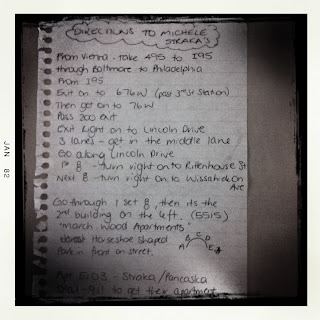 DIRECTIONS TO MICHELE
STRAKA'S
From Vienna - take 495 to I95
through Baltimore to Philadelphia
From I95
Exit on to 676W (past 3rd St Station)
Then get on to 76W
Pass 200 exit
Exit Right on to Lincoln Drive
3 lanes - get in the middle lane
Go along Lincoln Drive
1st 8 - turn right on to Rittenhouse St
Next 8 - turn right on to Wissahickon
Ave
Go through 1 set 8, then its the
2nd building on the left. (5515)
"March Wood Apartments"
Horseshoe shaped
Park in front on street.
A B C D E
Apt E103 - Straka/Pancaska
Dial -911 to get their apartment
JAN 82